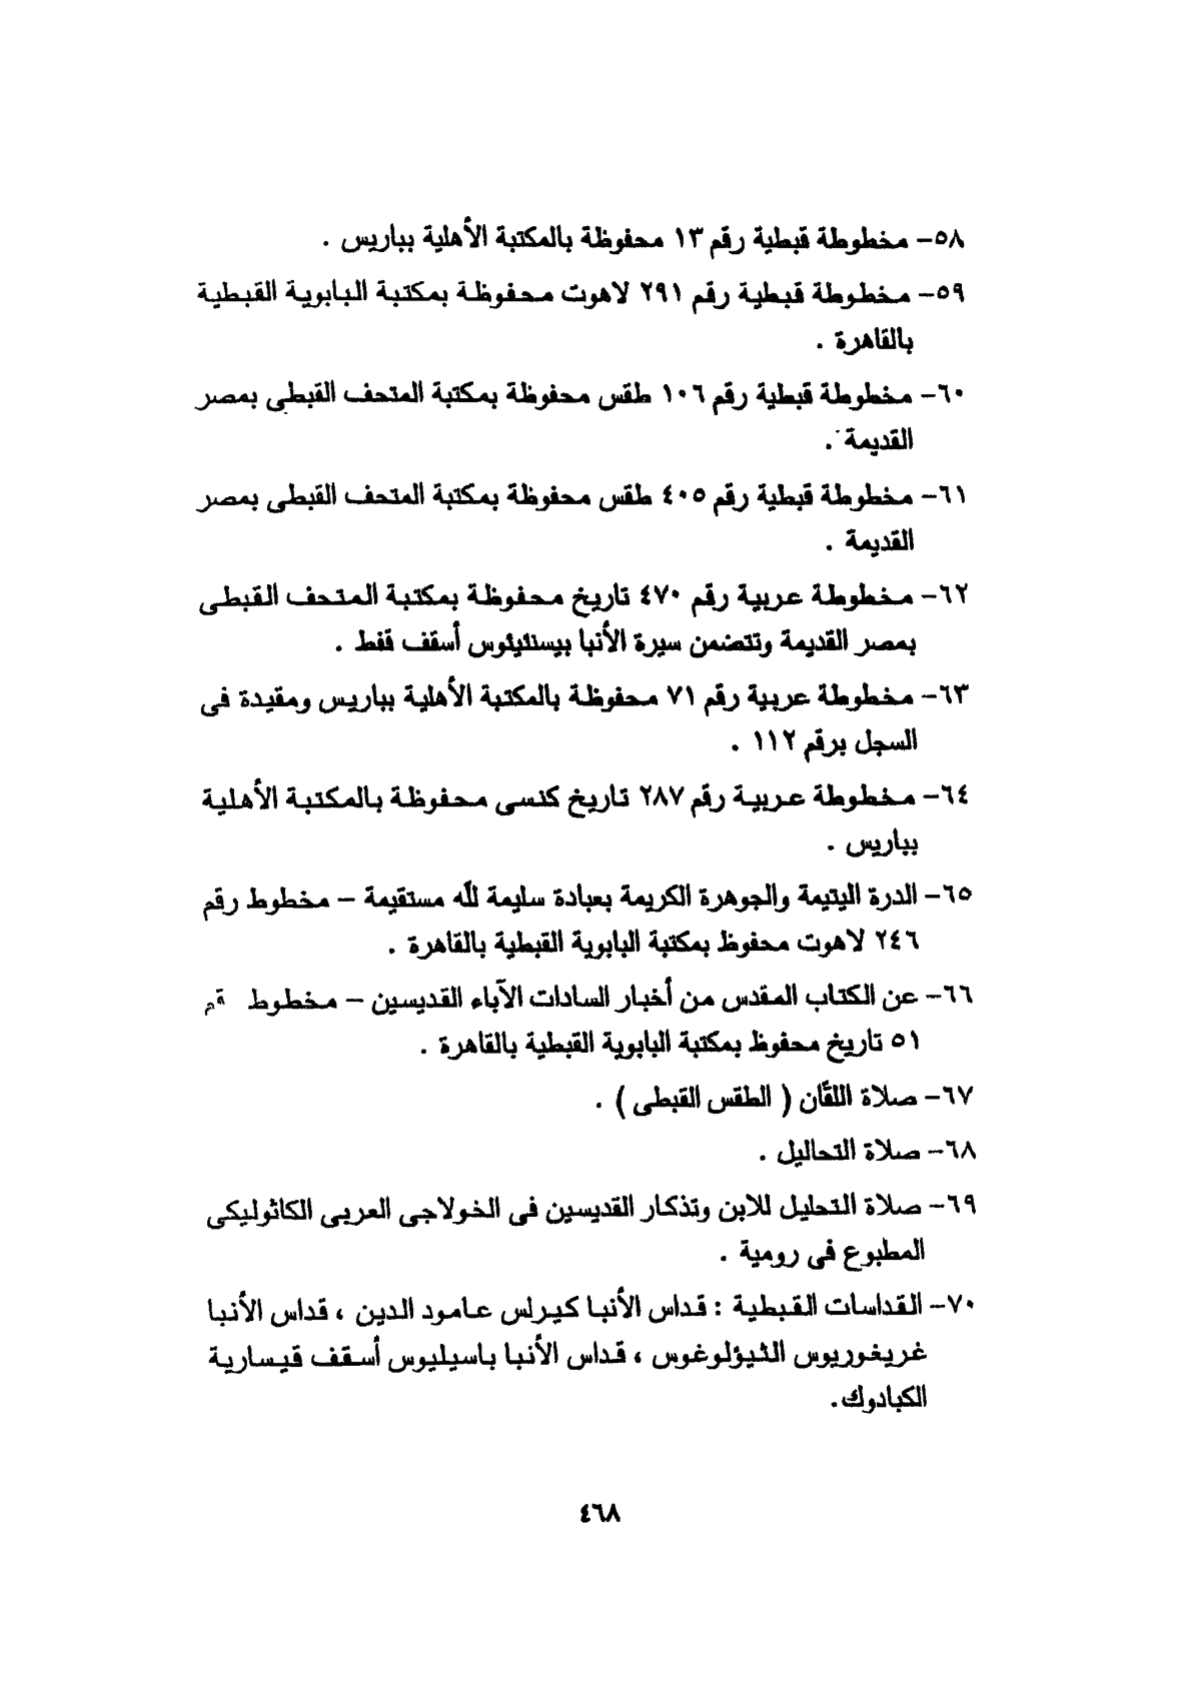 ٥٨- مخطوطة قبطية رقم ١٣ محفوظة بالمكتبة الأهلية بباريس .
٥٩- مخطوطة قبطية رقم ٢٩١ لاهوت محفوظة بمكتبة البابوية القبطية
بالقاهرة .
٦٠- مخطوطة قبطية رقم ١٠٦ طقس محفوظة بمكتبة المتحف القبطى بمصر
القديمة .
٦١- مخطوطة قبطية رقم ٤٠٥ طقس محفوظة بمكتبة المتحف القبطى بمصر
القديمة .
٦٢- مخطوطة عربية رقم ٤٧٠ تاريخ محفوظة بمكتبة المتحف القبطى
بمصر القديمة وتتضمن سيرة الأنبا بيسنتيئوس أسقف قفط .
٦٣- مخطوطة عربية رقم ٧١ محفوظة بالمكتبة الأهلية بباريس ومقيدة فى
السجل برقم ١١٢ .
٦٤- مخطوطة عربية رقم ٢٨٧ تاريخ كنسى محفوظة بالمكتبة الأهلية
بباريس .
٦٥- الدرة اليتيمة والجوهرة الكريمة بعبادة سليمة لله مستقيمة – مخطوط رقم
٢٤٦ لاهوت محفوظ بمكتبة البابوية القبطية بالقاهرة .
٦٦- عن الكتاب المقدس من أخبار السادات الآباء القديسين – مخطوط
٥١ تاريخ محفوظ بمكتبة البابوية القبطية بالقاهرة .
٦٧- صلاة اللقَّان ( الطقس القبطى ) .
٦٨- صلاة التحاليل .
٦٩- صلاة التحليل للابن وتذكار القديسين فى الخولاجى العربى الكاثوليكى
المطبوع فى رومية .
٧٠- القداسات القبطية : قداس الأنبا كيرلس عامود الدين ، قداس الأنبا
غريغوريوس الثيؤلوغوس ، قداس الأنبا باسيليوس أسقف قيسارية
الكبادوك.
٤٦٨